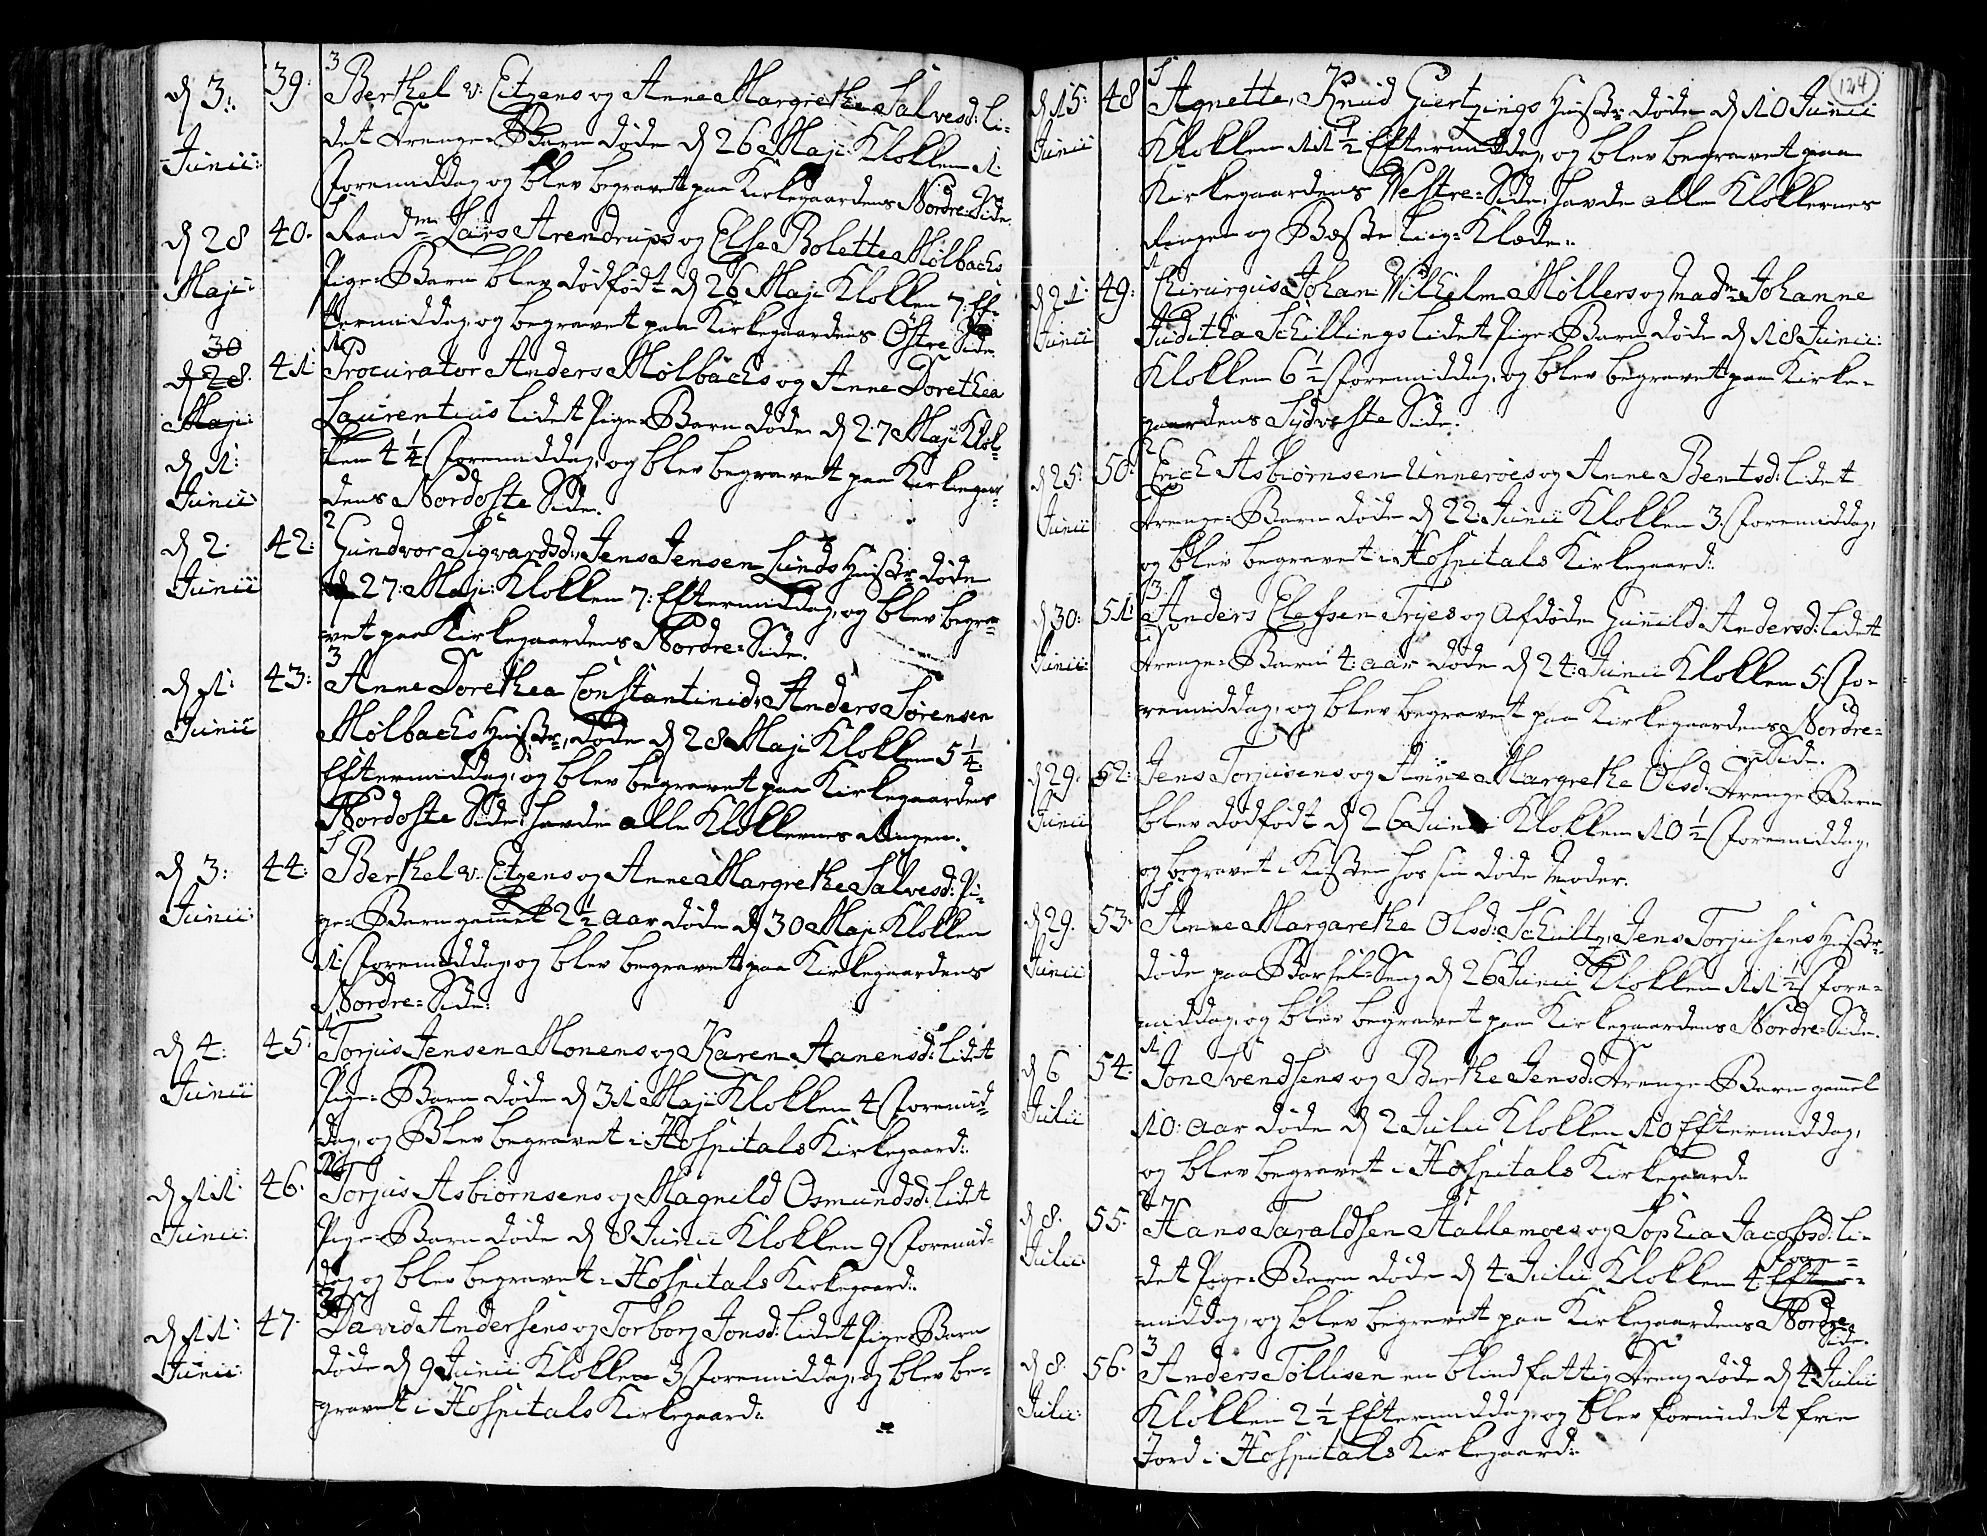 d 3: Junii: 39: 3 Berthel v. Eitzens og Anne Margrethe Salvesd: li-
det Drenge-Barn døde d 26 Maji Klokken 1:
Foremiddag og blev begravet paa Kirkegaardens Nordre-Side.
d 28 Maji: 40. 1 Raadm Lars Arendrups og Else Bolette Mølbachs
Pige-Barn blev dødfødt d 26 Maji Klokken 7: Ef-
termiddag, og begravet paa Kirkegaardens Østre Side.
30 d 28. Maji: d 1: Junii 41: 1 Procurator Anders Mølbachs og Anne Dorethea
Laurentius lidet Pige-Barn døde d 27 Maji Klok-
ken 4 1/4 Foremiddag, og blev begravet paa Kirkegaar-
dens Nordoste Side.
d 2. Junii 42: 2 Gundvor Sigvardsd:, Jens Jensen Lunds Hustr: døde
d 27: Maji: Klokken 7: Eftermiddag, og blev begra-
vet paa Kirkegaardens Nordre-Side.
d 1: Junii 43: 3 Anne Dorethea Constantinid:, Anders Sørensen
Mølbachs Hustr:, døde d 28 Maji Klokken 5 1/4:
Eftermiddag, og blev begravet paa Kirkegaardens
Nordoste Side, havde alle Klokkernes Ringen.
d 3: Junii: 44: 1 Berthel v. Eitzens og Anne Margrethe Salvesd: Pi-
ge-Barn gamel 2 1/2 aar døde d 30 Maji Klokken
1: Foremiddag, og blev begravet paa Kirkegaardens
Nordre-Side:
d 4: Junii 45: 1 Torjus Jensen Monens og Karen Aanensd: lidet
Pige-Barn døde d 31 Maji Klokken 4 Foremid-
dag, og Blev begravet i Hospitals Kirkegaard:
d 11: Junii: 46: Torjus Asbiørnsens og Magnild Osmundsd: lidet
Pige-Barn døde d 8 Junii Klokken 9 Foremid-
dag og blev begravet i Hospitals Kirkegaard:
d 11: Junii: 47. 2 David Andersens og Torborg Jonsd: lidet Pige-Barn
døde d 9 Junii Klokken 3 Foremiddag, og blev be-
gravet i Hospitals Kirkegaard:
124
d 15: Junii 48 1 Agnette, Knud Giertzings Hustr: døde d 10 Junii
Klokken 11 1/2 Eftermiddag, og blev begravet paa
Kirkegaardens Vestre-Side, havde alle Klokkernes
Ringen og Beste Liig-Klæde:
d 21: Junii 49: 1 Chirurgus Johan Wilhelm Møllers og Mad: Johanne
Juditha Schillings lidet Pige-Barn døde d 18 Junii:
Klokken 6 1/2 Foremiddag, og blev begravet paa Kirke-
gaardens Sydveste Side.
d 25: Junii 50: 2 Erich Asbiørnsen Unnerøes og Anne Bentsd: lidet
Drenge-Barn døde d 22: Junii Klokken 3: Foremiddag,
og blev begravet i Hospitals Kirkegaard:
d 30: Junii: 51: 3 Anders Elefsen Tryes og Afdøde Gunild Andersd: lidet
Drenge-Barn 4: aar døde d 24: Junii Klokken 5: Fo-
remiddag, og blev begravet paa Kirkegaardens Nordre-
Side.
d 29. Junii 52: Jens Torjusens og Anne Margrethe Olsd: Drenge Barn
blev dødfødt d 26 Junii Klokken 10 1/2 Foremiddag,
og begravet i Kisten hos sin døde Moder.
d 29. Junii 53: 1 Anne Margarethe Olsd: Schultz, Jens Torjusens Hustr:
døde paa Barsel-Seng d 26 Junii Klokken 11 1/2 Fore-
middag, og blev begravet paa Kirkegaardens Nordre-Side.
d 6 Julii 54: 1 Jon Svendsens og Berthe Jensd: Drenge-Barn gamel
10: aar døde d 2 Julii Klokken 10 Eftermiddag,
og blev begravet i Hospitals Kirkegaard
d 8. Julii 55: 2 Hans Taraldsen Hallemoes og Sophia Jacobsd: li-
det Pige-Barn døde d 4 Julii Klokken 4: Efter- Fore-
middag, og blev begravet paa Kirkegaardens Nordre
Side.
d 8. Julii: 56: 3 Anders Tollisen en blind fattig Dreng døde d 4 Julii
Klokken 2 1/2 Eftermiddag, og blev forundet frie
Jord i Hospitals Kirkegaard: